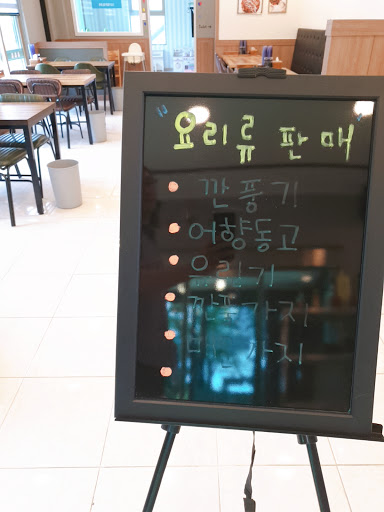 "요리류 판매"
깐풍기
어향동고
유린기
깐풍가지
가지